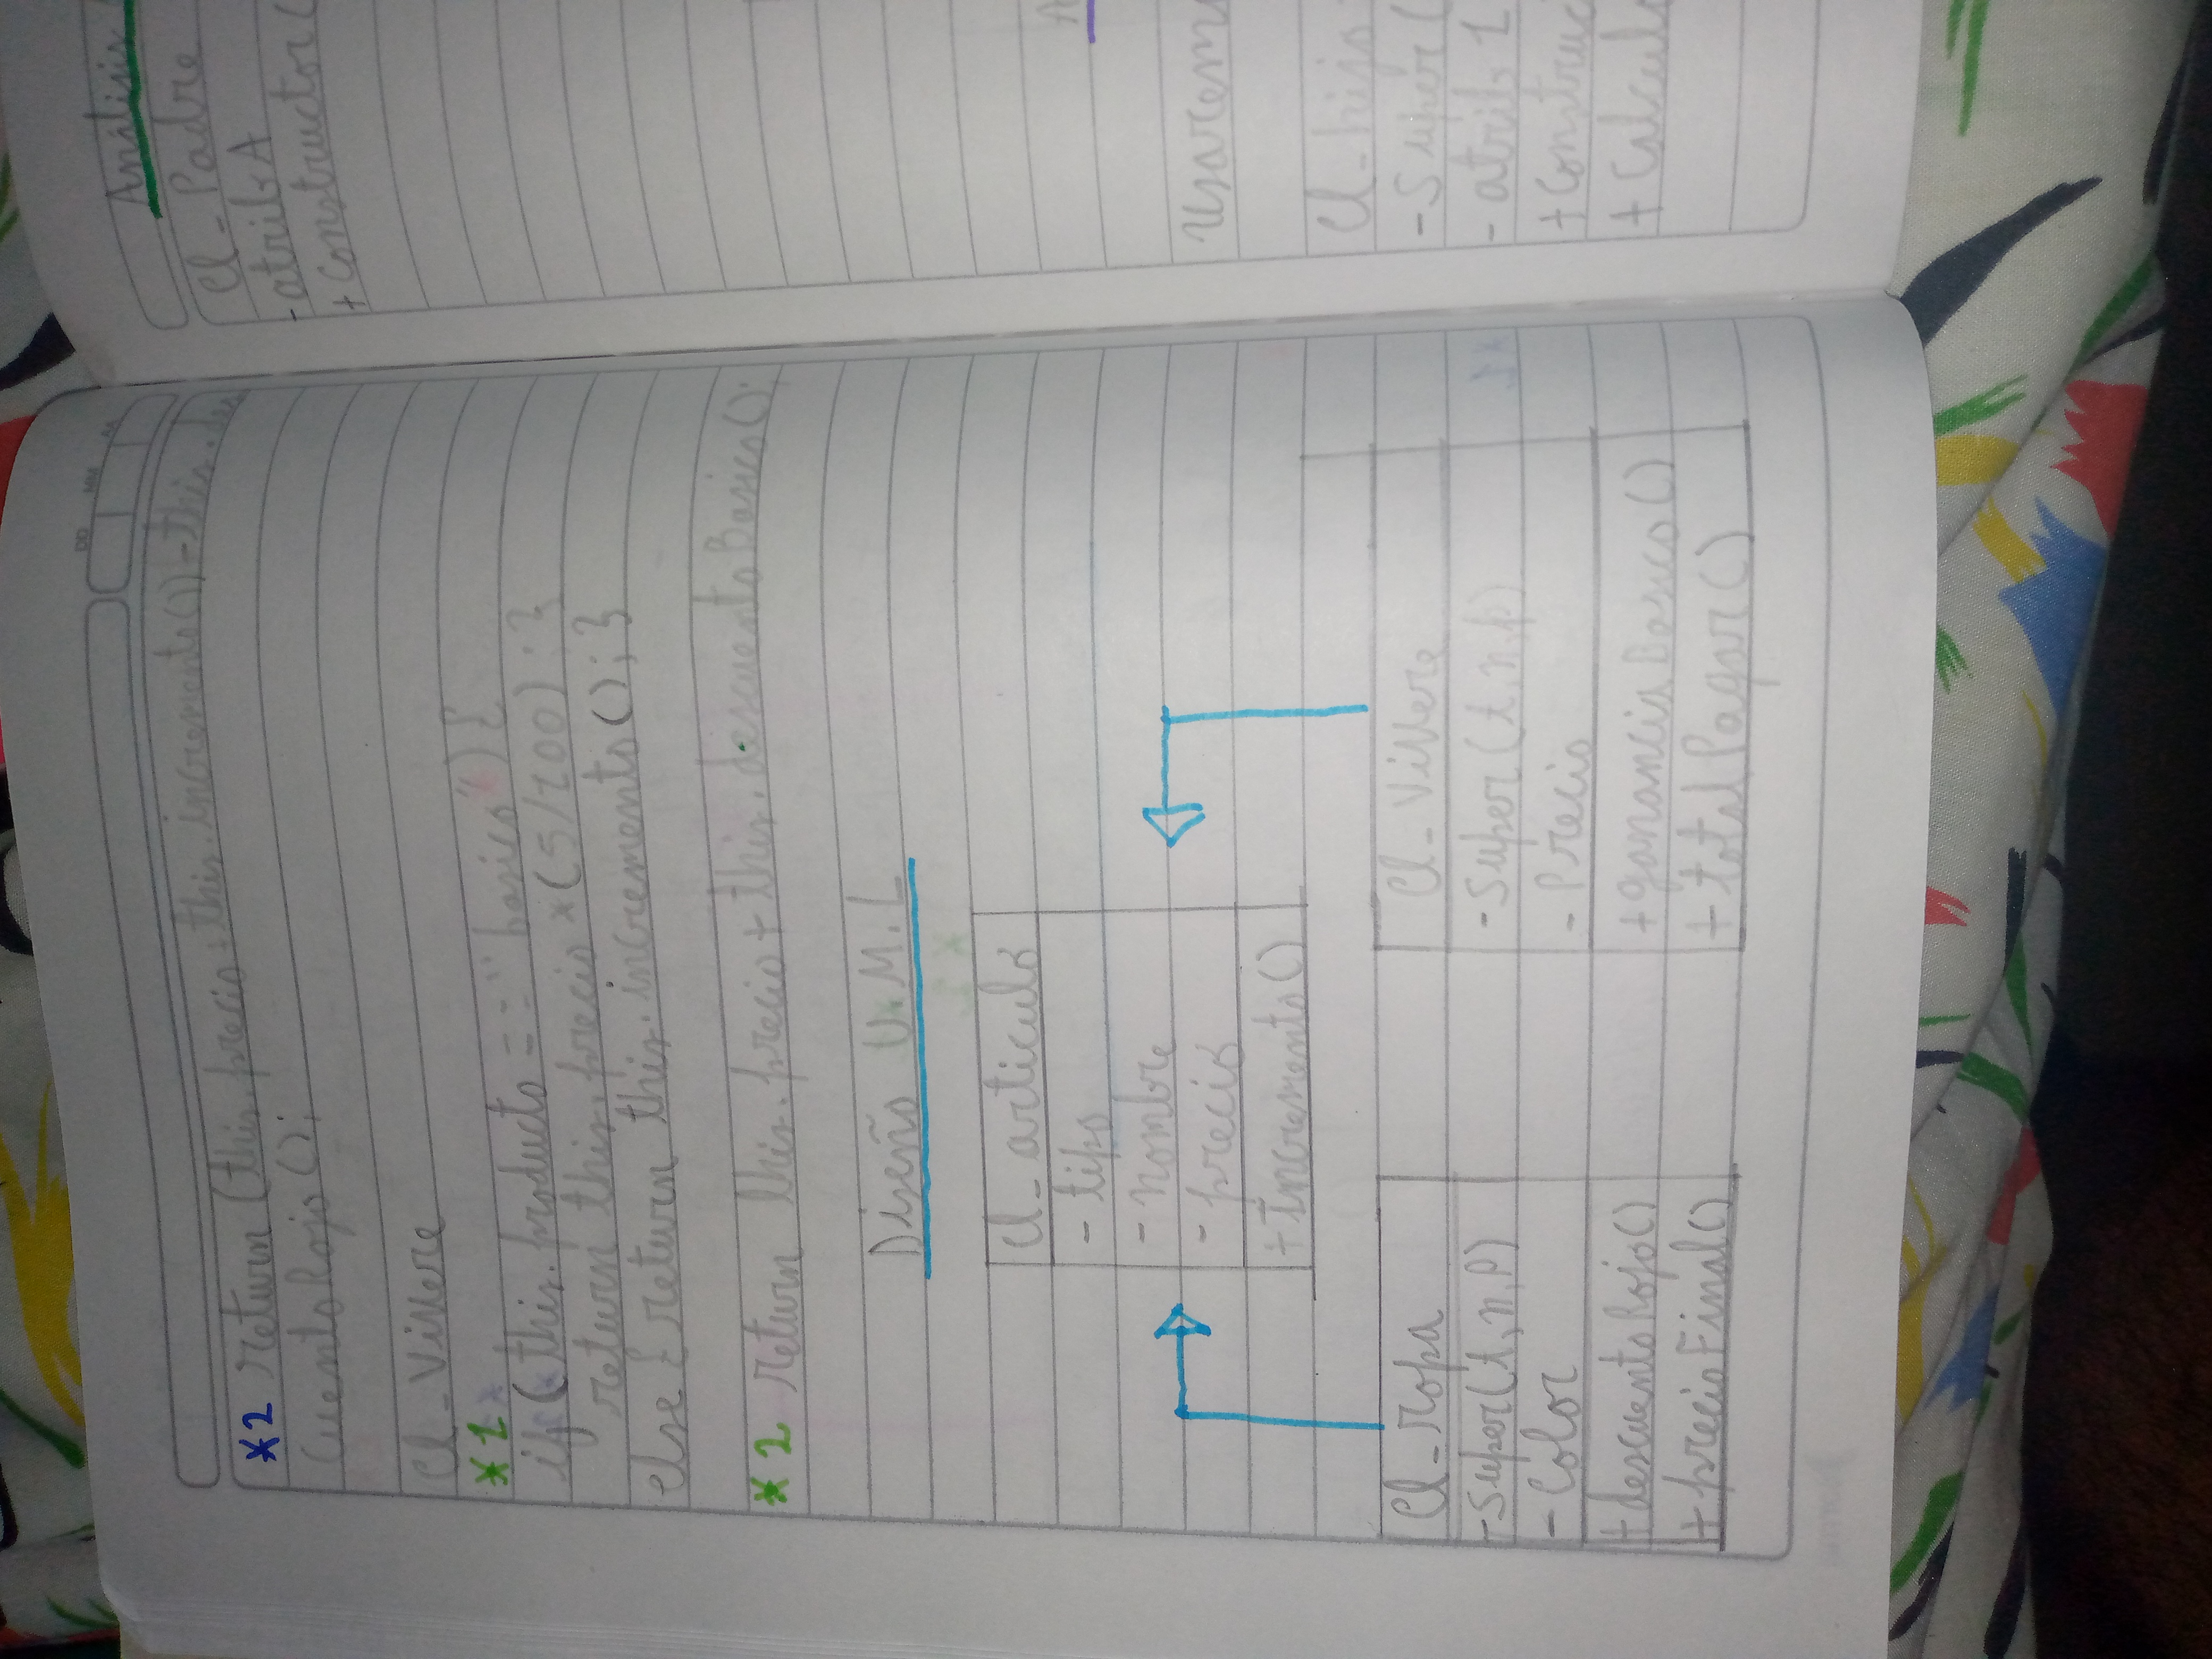 DD MM AA
*2 return (this.precio + this.incremento()) - this.des
cuentoRojo();
Cl_Villere
*1
if (this.producto == "basico") {
return this.precio * (5/100); }
else { return this.incremento(); }
*2 return this.precio + this.descuentoBasico();
Diseño U.M.L
Cl_articulo
- tipo
- nombre
- precio
+ Incremento()
Cl_ropa
- Super(t, n, p)
- Color
+ descuentoRojo()
+ precioFinal()
Cl_Villere
- Super(t, n, p)
- Precio
+ gananciaBasico()
+ totalPagar()
Análisis
Cl_Padre
- atrib A
+ Constructor(
A
Usarem
Cl_hijo
- Super(
- atrib 1
+ Construc
+ Calcul